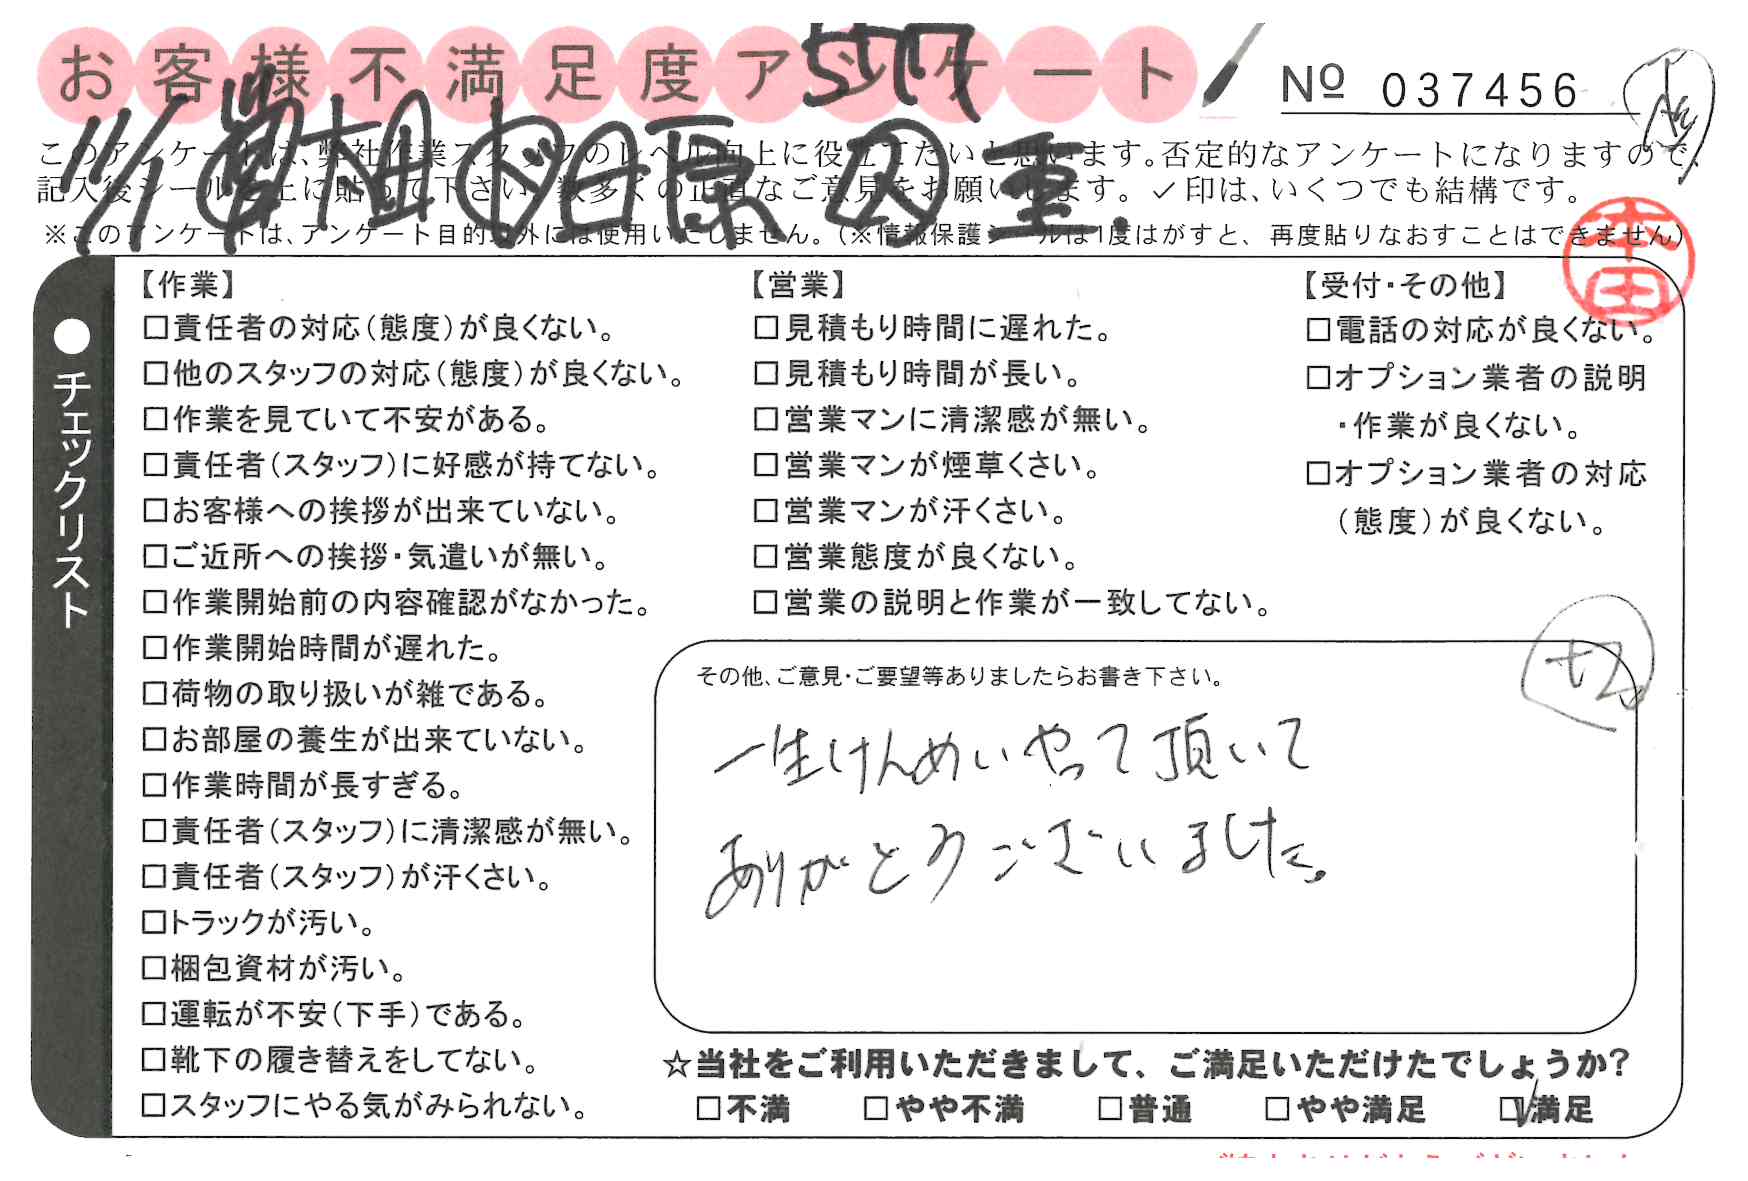 お客様不満足度アンケート
Nº 037456
このアンケートは、弊社作業スタッフのレベル向上に役立てたいと思います。否定的なアンケートになりますので、
記入後シールを上に貼って下さい。数多くの正直なご意見をお願いします。✓印は、いくつでも結構です。
※このアンケートは、アンケート目的以外には使用いたしません。(※情報保護シールは1度はがすと、再度貼りなおすことはできません)
11/1
本田
●チェックリスト
【作業】
□責任者の対応(態度)が良くない。
□他のスタッフの対応(態度)が良くない。
□作業を見ていて不安がある。
□責任者(スタッフ)に好感が持てない。
□お客様への挨拶が出来ていない。
□ご近所への挨拶・気遣いが無い。
□作業開始前の内容確認がなかった。
□作業開始時間が遅れた。
□荷物の取り扱いが雑である。
□お部屋の養生が出来ていない。
□作業時間が長すぎる。
□責任者(スタッフ)に清潔感が無い。
□責任者(スタッフ)が汗くさい。
□トラックが汚い。
□梱包資材が汚い。
□運転が不安(下手)である。
□靴下の履き替えをしてない。
□スタッフにやる気がみられない。
【営業】
□見積もり時間に遅れた。
□見積もり時間が長い。
□営業マンに清潔感が無い。
□営業マンが煙草くさい。
□営業マンが汗くさい。
□営業態度が良くない。
□営業の説明と作業が一致してない。
【受付・その他】
□電話の対応が良くない。
□オプション業者の説明
・作業が良くない。
□オプション業者の対応
(態度)が良くない。
その他、ご意見・ご要望等ありましたらお書き下さい。
一生けんめいやって頂いて
ありがとうございました。
☆当社をご利用いただきまして、ご満足いただけたでしょうか?
□不満 □やや不満 □普通 □やや満足 ☑満足